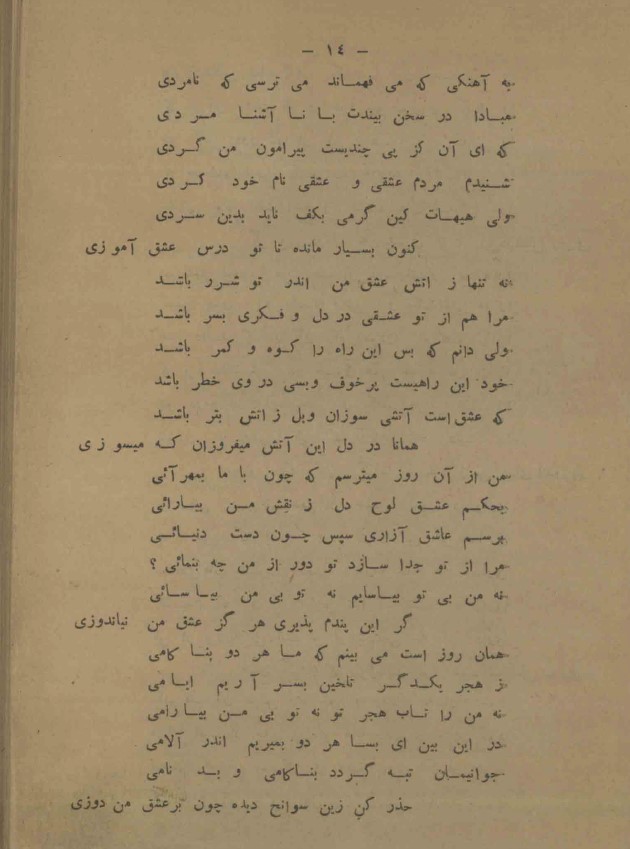 - ١٤ -
به آهنکی که می فهماند می ترسی که نامردی
مبادا در سخن بیندت با نا آشنا مردی
که ای آن کز پی چندیست پیرامون من گردی
شنیدم مردم عشقی و عشقی نام خود کردی
ولی هیهات کین گرمی بکف ناید بدین سردی
کنون بسیار مانده تا تو درس عشق آموزی
نه تنها ز اتش عشق من اندر تو شرر باشد
مرا هم از تو عشقی در دل و فکری بسر باشد
ولی دانم که بس این راه را کوه و کمر باشد
خود این راهیست پرخوف وبسی در وی خطر باشد
که عشق است آتشی سوزان وبل ز اتش بتر باشد
همانا در دل این آتش میفروزان که میسوزی
من از آن روز میترسم که چون با ما بمهرآئی
بحکم عشق لوح دل ز نقش من بیارائی
برسم عاشق آزاری سپس چون دست دنیائی
مرا از تو جدا سازد تو دور از من چه بنمائی ؟
نه من بی تو بیاسایم نه تو بی من بیاسائی
گر این پندم پذیری هر گز عشق من نیاندوزی
همان روز است می بینم که ما هر دو بنا کامی
ز هجر یکدگر تلخین بسر آریم ایامی
نه من را تاب هجر تو نه تو بی من بیارامی
در این بین ای بسا هر دو بمیریم اندر آلامی
جوانیمان تبه گردد بناکامی و بد نامی
حذر کن زین سوانح دیده چون برعشق من دوزی